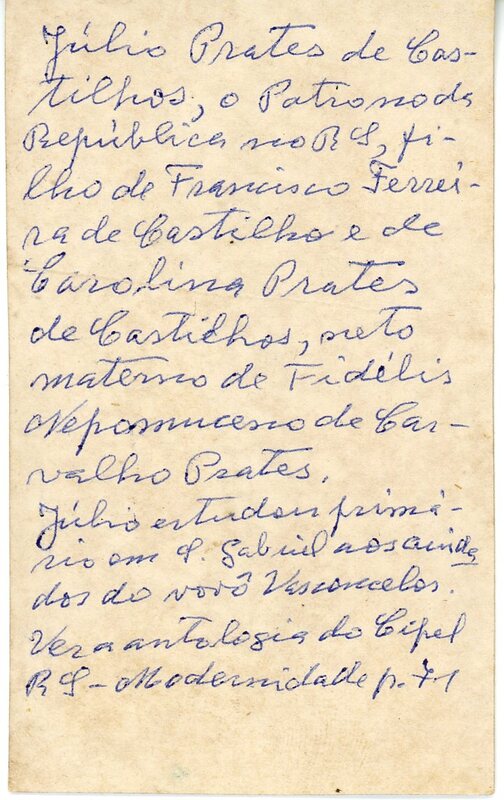 Júlio Prates de Cas-
tilhos, o Patrono da
República no RS, fi-
lho de Francisco Ferrei-
ra de Castilho e de
Carolina Prates
de Castilhos, neto
materno de Fidélis
Nepomuceno de Car-
valho Prates.
Júlio estudou primá-
rio em S. Gabriel aos cuida
dos do vovô Vasconcelos.
Ver a antologia do Cipel
RS - Modernidade p. 71